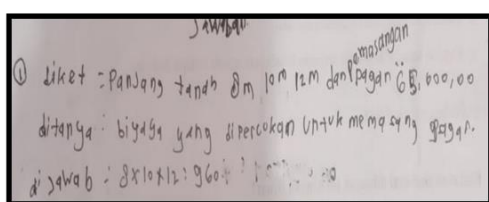 Jawaban
① diket = Panjang tanah 8m 10m 12m dan Pemasangan pagan 65,000,00
ditanya : biyaya yang dipercokan untuk memasang pagan.
di jawab : 8x10x12 : 960